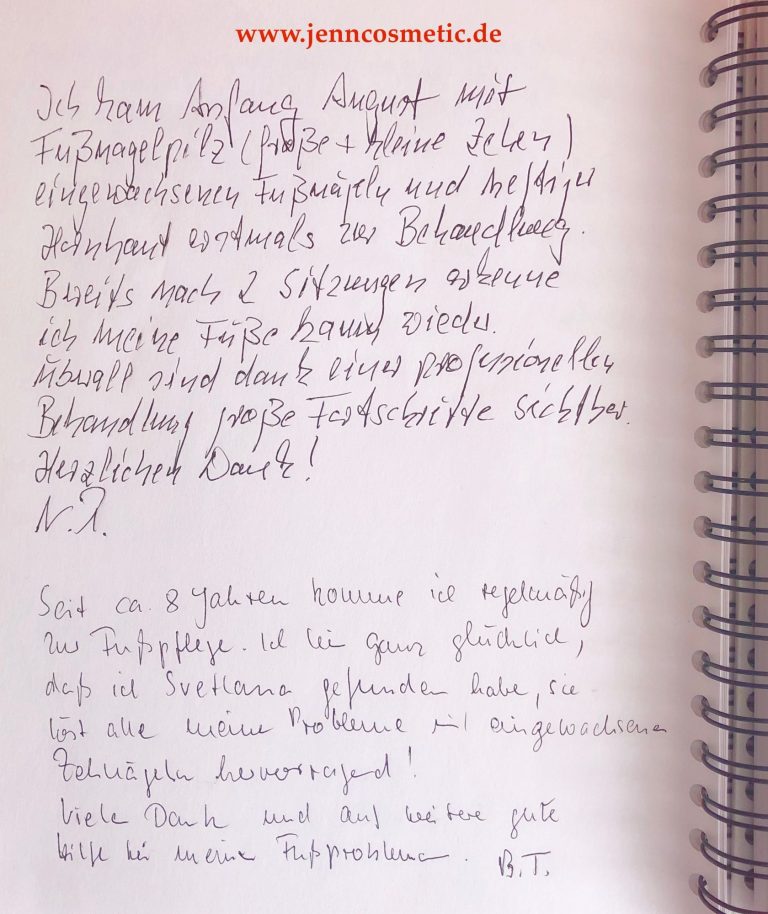 www.jenncosmetic.de
Ich kam Anfang August mit
Fußnagelpilz (große + kleine Zehen)
eingewachsenen Fußnägeln und heftiger
Hornhaut erstmals zur Behandlung.
Bereits nach 2 Sitzungen erkenne
ich meine Füße kaum wieder.
Überall sind dank einer professionellen
Behandlung große Fortschritte sichtbar.
Herzlichen Dank!
N.
Seit ca. 8 Jahren komme ich regelmäßig
zur Fußpflege. Ich bin ganz glücklich,
daß ich Svetlana gefunden habe, sie
löst alle meine Probleme mit eingewachsenen
Zehnägeln hervorragend!
Vielen Dank und auf weitere gute
Hilfe bei meinen Fußproblemen. B.T.